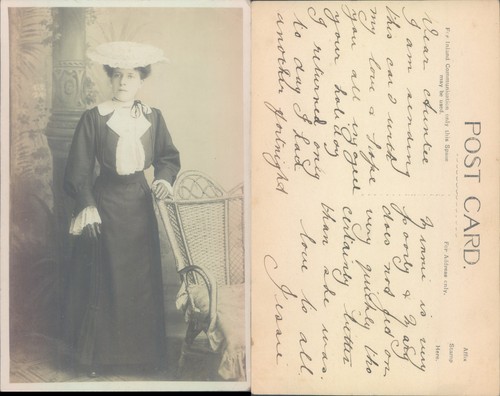 POST CARD.
For Inland Communication only this Space
may be used.
For Address only.
Affix
Stamp
Here.
Dear Auntie
I am sending
this card with
my love & hope
you all enjoyed
your holiday
I returned only
to day I had
another fortnight
Winnie is very
poorly &
does not get on
very quickly tho
certainly better
than she was.
love to all
Jessie